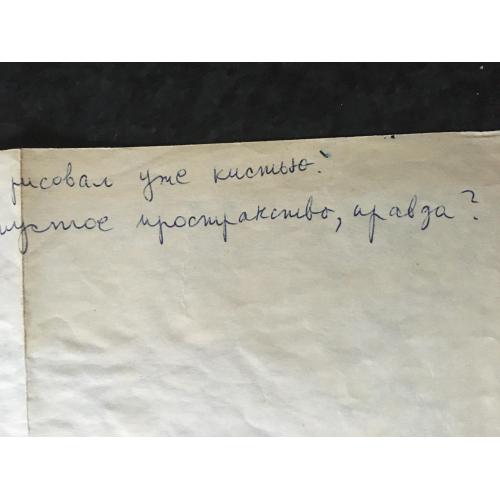 рисовал уже кистью.
пустое пространство, правда?